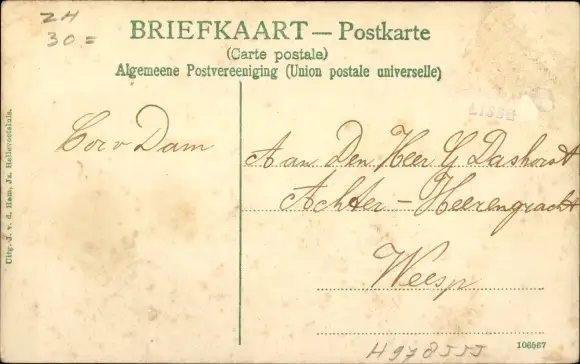 ZH
30=
BRIEFKAART — Postkarte
(Carte postale)
Algemeene Postvereeniging (Union postale universelle)
LISSE
Cor v Dam
Aan Den Heer G Dashorst
Achter - Heerengracht
Weesp
Uitg. J. v. d. Ham, Jz. Hellevoetsluis.
106567
H978555